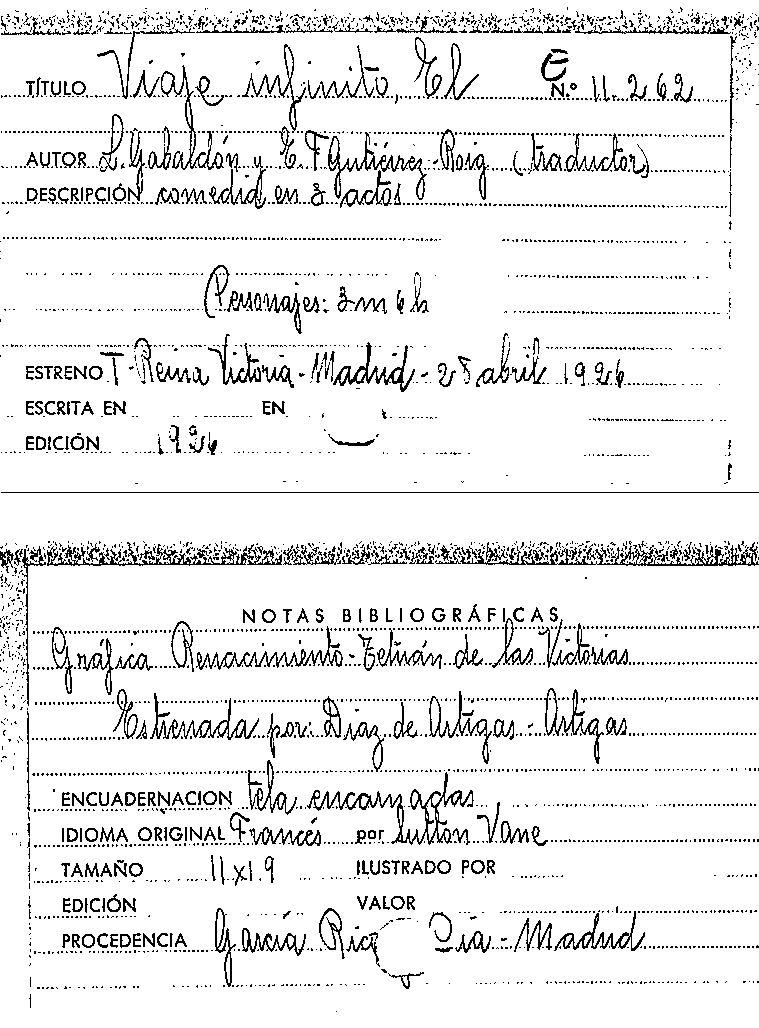 TÍTULO Viaje infinito, El E N.º 11.262
AUTOR L. Gabaldón y E. F Gutiérrez-Roig (traductor)
DESCRIPCIÓN comedia en 3 actos
Personajes: 3 m 6 h
ESTRENO T. Reina Victoria - Madrid - 28 abril 1926
ESCRITA EN EN
EDICIÓN 1926
NOTAS BIBLIOGRÁFICAS
Gráfica Renacimiento - Tetuán de las Victorias
Estrenada por: Diaz de Artigas - Artigas
ENCUADERNACION tela encarnadas
IDIOMA ORIGINAL Francés por Sutton Vane
TAMAÑO 11x1.9 ILUSTRADO POR
EDICIÓN VALOR
PROCEDENCIA García Rico Cia - Madrid